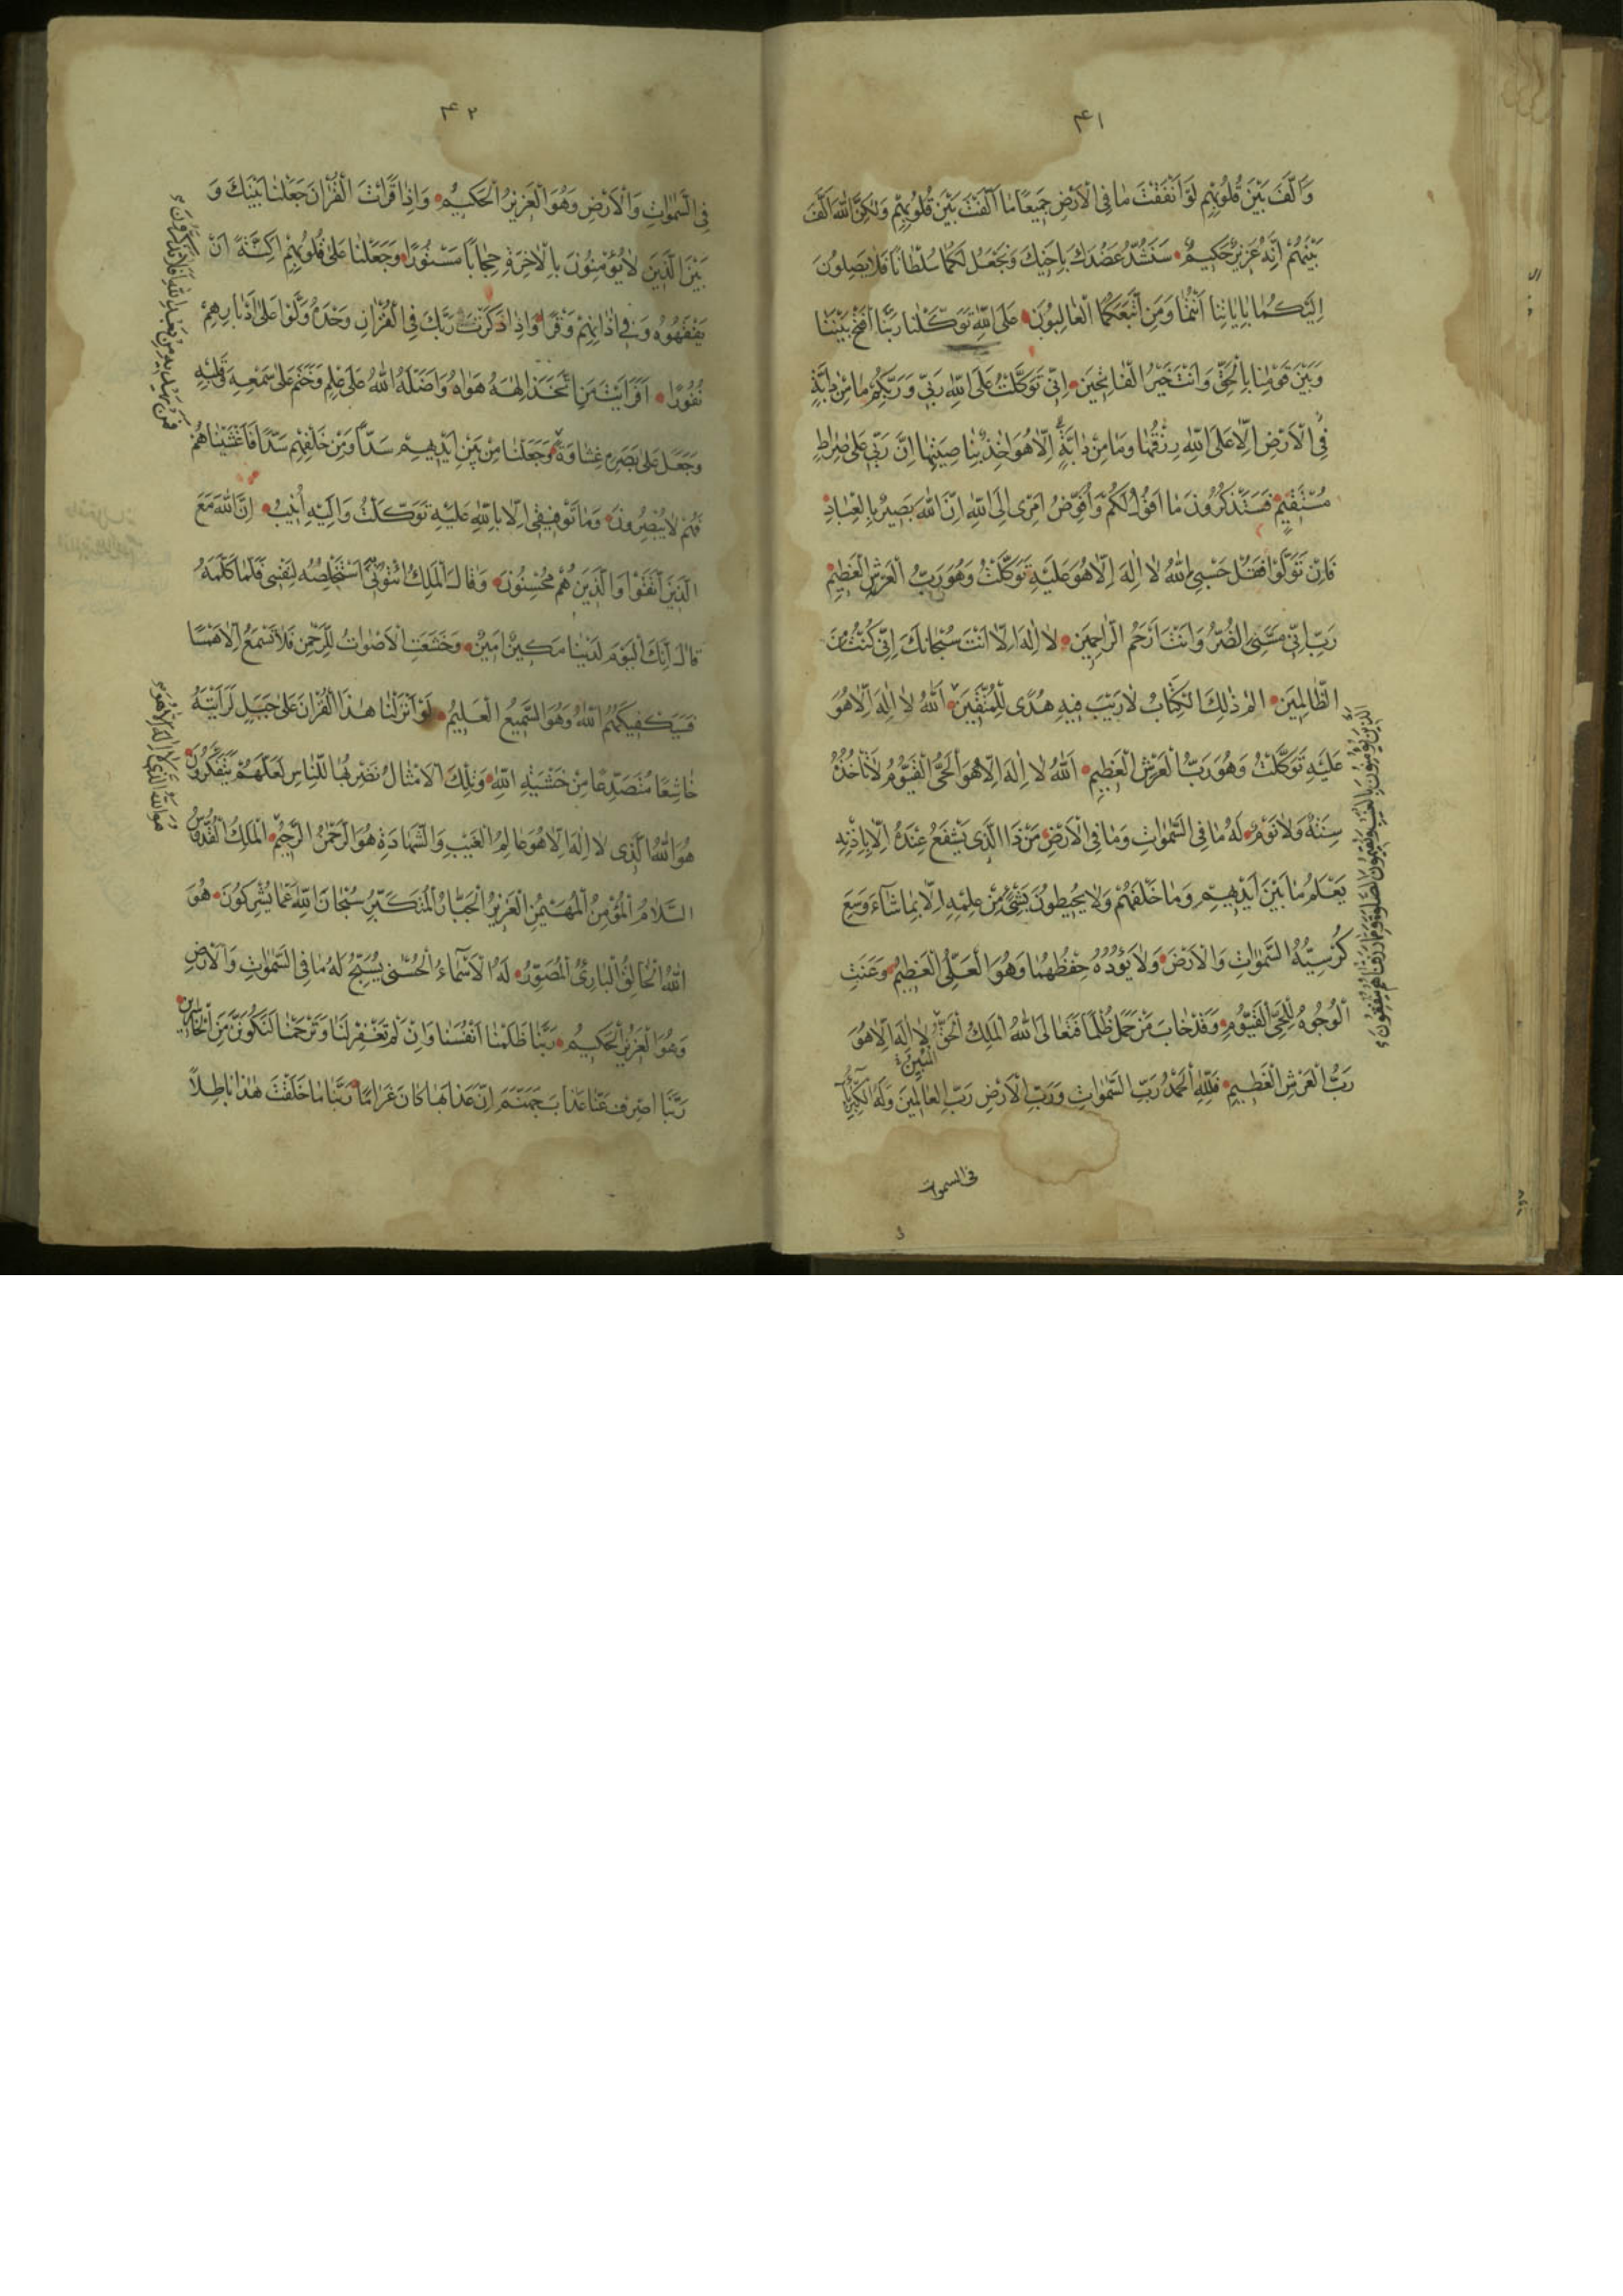 ۴۱
وَاَلَّفَ بَيْنَ قُلُوبِهِمْ لَوْ اَنْفَقْتَ مَا فِى الْاَرْضِ جَمِيعًا مَا اَلَّفْتَ بَيْنَ قُلُوبِهِمْ وَلٰكِنَّ اللّٰهَ اَلَّفَ
بَيْنَهُمْ اِنَّهُ عَزِيزٌ حَكِيمٌ سَنَشُدُّ عَضُدَكَ بِاَخِيكَ وَنَجْعَلُ لَكُمَا سُلْطَانًا فَلَا يَصِلُونَ
اِلَيْكُمَا بِاٰيَاتِنَا اَنْتُمَا وَمَنِ اتَّبَعَكُمَا الْغَالِبُونَ عَلَى اللّٰهِ تَوَكَّلْنَا رَبَّنَا افْتَحْ بَيْنَنَا
وَبَيْنَ قَوْمِنَا بِالْحَقِّ وَاَنْتَ خَيْرُ الْفَاتِحِينَ اِنِّى تَوَكَّلْتُ عَلَى اللّٰهِ رَبِّى وَرَبِّكُمْ مَا مِنْ دَابَّةٍ
فِى الْاَرْضِ اِلَّا عَلَى اللّٰهِ رِزْقُهَا وَمَا مِنْ دَابَّةٍ اِلَّا هُوَ اٰخِذٌ بِنَاصِيَتِهَا اِنَّ رَبِّى عَلٰى صِرَاطٍ
مُسْتَقِيمٍ فَسَتَذْكُرُونَ مَا اَقُولُ لَكُمْ وَاُفَوِّضُ اَمْرِى اِلَى اللّٰهِ اِنَّ اللّٰهَ بَصِيرٌ بِالْعِبَادِ
فَاِنْ تَوَلَّوْا فَقُلْ حَسْبِىَ اللّٰهُ لَا اِلٰهَ اِلَّا هُوَ عَلَيْهِ تَوَكَّلْتُ وَهُوَ رَبُّ الْعَرْشِ الْعَظِيمِ
رَبِّ اِنِّى مَسَّنِىَ الضُّرُّ وَاَنْتَ اَرْحَمُ الرَّاحِمِينَ لَا اِلٰهَ اِلَّا اَنْتَ سُبْحَانَكَ اِنِّى كُنْتُ مِنَ
الظَّالِمِينَ الم ذٰلِكَ الْكِتَابُ لَا رَيْبَ فِيهِ هُدًى لِلْمُتَّقِينَ اَللّٰهُ لَا اِلٰهَ اِلَّا هُوَ
عَلَيْهِ تَوَكَّلْتُ وَهُوَ رَبُّ الْعَرْشِ الْعَظِيمِ اَللّٰهُ لَا اِلٰهَ اِلَّا هُوَ الْحَىُّ الْقَيُّومُ لَا تَاْخُذُهُ
سِنَةٌ وَلَا نَوْمٌ لَهُ مَا فِى السَّمٰوَاتِ وَمَا فِى الْاَرْضِ مَنْ ذَا الَّذِى يَشْفَعُ عِنْدَهُ اِلَّا بِاِذْنِهِ
يَعْلَمُ مَا بَيْنَ اَيْدِيهِمْ وَمَا خَلْفَهُمْ وَلَا يُحِيطُونَ بِشَىْءٍ مِنْ عِلْمِهِ اِلَّا بِمَا شَآءَ وَسِعَ
كُرْسِيُّهُ السَّمٰوَاتِ وَالْاَرْضَ وَلَا يَؤُدُهُ حِفْظُهُمَا وَهُوَ الْعَلِىُّ الْعَظِيمُ وَعَنَتِ
الْوُجُوهُ لِلْحَىِّ الْقَيُّومِ وَقَدْ خَابَ مَنْ حَمَلَ ظُلْمًا فَتَعَالَى اللّٰهُ الْمَلِكُ الْحَقُّ لَا اِلٰهَ اِلَّا هُوَ
رَبُّ الْعَرْشِ الْعَظِيمِ فَلِلّٰهِ الْحَمْدُ رَبِّ السَّمٰوَاتِ وَرَبِّ الْاَرْضِ رَبِّ الْعَالَمِينَ وَلَهُ الْكِبْرِيَاءُ
فى السموات
الَّذِينَ يُؤْمِنُونَ بِالْغَيْبِ وَيُقِيمُونَ الصَّلٰوةَ وَمِمَّا رَزَقْنَاهُمْ يُنْفِقُونَ
۴۲
فِى السَّمٰوَاتِ وَالْاَرْضِ وَهُوَ الْعَزِيزُ الْحَكِيمُ وَاِذَا قَرَاْتَ الْقُرْاٰنَ جَعَلْنَا بَيْنَكَ وَ
بَيْنَ الَّذِينَ لَا يُؤْمِنُونَ بِالْاٰخِرَةِ حِجَابًا مَسْتُورًا وَجَعَلْنَا عَلٰى قُلُوبِهِمْ اَكِنَّةً اَنْ
يَفْقَهُوهُ وَفِى اٰذَانِهِمْ وَقْرًا وَاِذَا ذَكَرْتَ رَبَّكَ فِى الْقُرْاٰنِ وَحْدَهُ وَلَّوْا عَلٰى اَدْبَارِهِمْ
نُفُورًا اَفَرَاَيْتَ مَنِ اتَّخَذَ اِلٰهَهُ هَوَاهُ وَاَضَلَّهُ اللّٰهُ عَلٰى عِلْمٍ وَخَتَمَ عَلٰى سَمْعِهِ وَقَلْبِهِ
وَجَعَلَ عَلٰى بَصَرِهِ غِشَاوَةً وَجَعَلْنَا مِنْ بَيْنِ اَيْدِيهِمْ سَدًّا وَمِنْ خَلْفِهِمْ سَدًّا فَاَغْشَيْنَاهُمْ
فَهُمْ لَا يُبْصِرُونَ وَمَا تَوْفِيقِى اِلَّا بِاللّٰهِ عَلَيْهِ تَوَكَّلْتُ وَاِلَيْهِ اُنِيبُ اِنَّ اللّٰهَ مَعَ
الَّذِينَ اتَّقَوْا وَالَّذِينَ هُمْ مُحْسِنُونَ وَقَالَ الْمَلِكُ ائْتُونِى اَسْتَخْلِصْهُ لِنَفْسِى فَلَمَّا كَلَّمَهُ
قَالَ اِنَّكَ الْيَوْمَ لَدَيْنَا مَكِينٌ اَمِينٌ وَخَشَعَتِ الْاَصْوَاتُ لِلرَّحْمٰنِ فَلَا تَسْمَعُ اِلَّا هَمْسًا
فَسَيَكْفِيكَهُمُ اللّٰهُ وَهُوَ السَّمِيعُ الْعَلِيمُ لَوْ اَنْزَلْنَا هٰذَا الْقُرْاٰنَ عَلٰى جَبَلٍ لَرَاَيْتَهُ
خَاشِعًا مُتَصَدِّعًا مِنْ خَشْيَةِ اللّٰهِ وَتِلْكَ الْاَمْثَالُ نَضْرِبُهَا لِلنَّاسِ لَعَلَّهُمْ يَتَفَكَّرُونَ
هُوَ اللّٰهُ الَّذِى لَا اِلٰهَ اِلَّا هُوَ عَالِمُ الْغَيْبِ وَالشَّهَادَةِ هُوَ الرَّحْمٰنُ الرَّحِيمُ الْمَلِكُ الْقُدُّوسُ
السَّلَامُ الْمُؤْمِنُ الْمُهَيْمِنُ الْعَزِيزُ الْجَبَّارُ الْمُتَكَبِّرُ سُبْحَانَ اللّٰهِ عَمَّا يُشْرِكُونَ هُوَ
اللّٰهُ الْخَالِقُ الْبَارِئُ الْمُصَوِّرُ لَهُ الْاَسْمَآءُ الْحُسْنٰى يُسَبِّحُ لَهُ مَا فِى السَّمٰوَاتِ وَالْاَرْضِ
وَهُوَ الْعَزِيزُ الْحَكِيمُ رَبَّنَا ظَلَمْنَا اَنْفُسَنَا وَاِنْ لَمْ تَغْفِرْ لَنَا وَتَرْحَمْنَا لَنَكُونَنَّ مِنَ الْخَاسِرِينَ
رَبَّنَا اصْرِفْ عَنَّا عَذَابَ جَهَنَّمَ اِنَّ عَذَابَهَا كَانَ غَرَامًا رَبَّنَا مَا خَلَقْتَ هٰذَا بَاطِلًا
فَمَنْ يَهْدِيهِ مِنْ بَعْدِ اللّٰهِ اَفَلَا تَذَكَّرُونَ
هُوَ اللّٰهُ الَّذِى لَا اِلٰهَ اِلَّا هُوَ